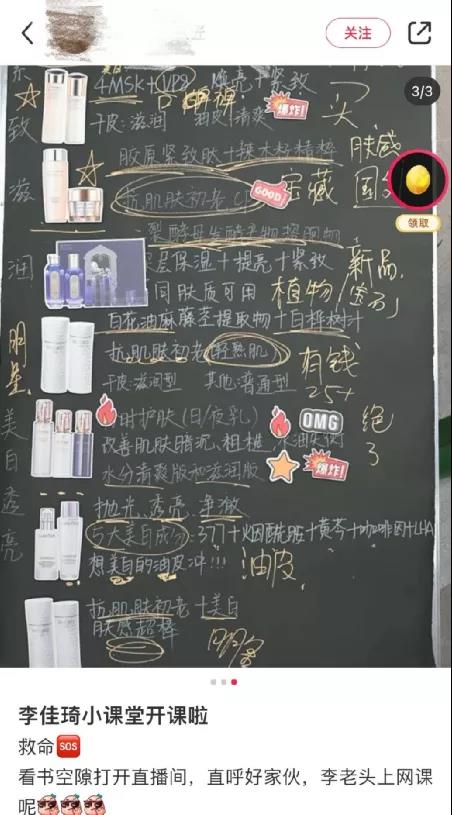 关注
3/3
致
4MSK+VPB 焕亮+紧致
干皮:滋润 油皮:清爽
爆炸!
一头
胶原紧致肽+辣木籽精粹
肤感
滋
抗肌肤初老,CP
GOOD!
宝藏
领取
裂酵母发酵产物提取物
润
深层保湿+提亮+紧致
新品
同肤质可用
植物
白花油麻藤茎提取物+白桦树汁
明星
抗肌肤初老(轻熟肌)
有钱
干皮:滋润型 其他:普通型
25+
时护肤(日/夜乳)
OMG
绝了
美白透亮
改善肌肤暗沉、粗糙、水油失衡
水分清爽版和滋润版
爆炸!
抛光、透亮、净澈
5大美白成分:377+烟酰胺+黄芩+咖啡因+LHA
想美白的油皮冲!!!
油皮
抗肌肤初老+美白
肤感超棒
李佳琦小课堂开课啦
救命SOS
看书空隙打开直播间，直呼好家伙，李老头上网课
呢